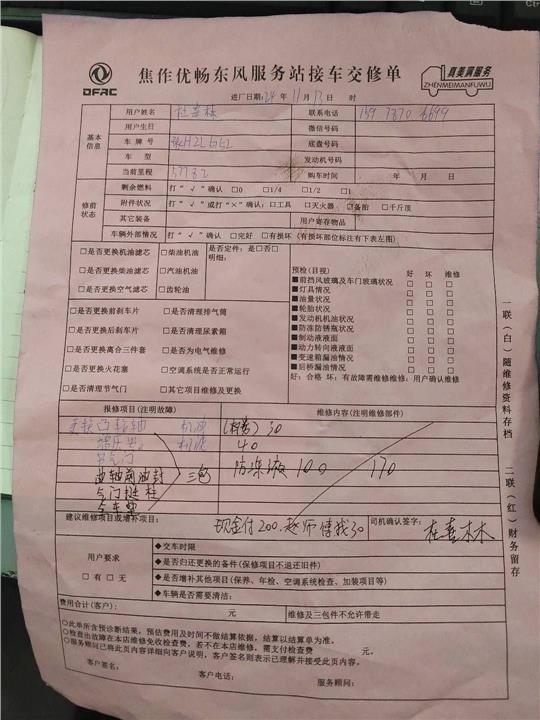 DFAC
焦作优畅东风服务站接车交修单
真美满服务
ZHENMEIMANFUWU
进厂日期:24 年 11 月 13 日 时
基本信息
用户姓名 杜喜林 联系电话
用户生日 微信号码
车 牌 号 底盘号码
车 型 发动机号码
当前里程 57782 购车时间 年 月 日
修前状态
剩余燃料 打“√”确认 □0 □1/4 □1/2 □1
附件状况 打“√”或打“×”确认:□工具 □灭火器 □备胎 □千斤顶
其它装备 用户寄存物品
车辆外部情况 打“√”确认 □完好 □有损坏(有损坏部位标注有下表左图)
□是否更换机油滤芯 □柴油机油 是否定件:是□否□
□是否更换柴油滤芯 □汽油机油 明细:
□是否更换空气滤芯 □齿轮油
□是否更换前刹车片 □是否清理排气筒
□是否更换后刹车片 □是否清理尿素箱
□是否更换离合三件套 □是否为电气维修
□是否更换火花塞 □空调系统是否正常运行
□是否清理节气门 □其它项目维修及更换
预检(目视) 好 坏 维修
■前挡风玻璃及车门玻璃状况 □ □ □
■灯具情况 □ □ □
■油量状况 □ □ □
■轮胎状况 □ □ □
■发动机机油状况 □ □ □
■防冻防锈瓶状况 □ □ □
■制动液液面 □ □ □
■动力转向液液面 □ □ □
■变速箱漏油情况 □ □ □
■后桥漏油情况 □ □ □
好:合格 坏:有故障需维修维修:用户确认维修
报修项目(注明故障) 维修内容(注明维修部件)
更换凸轮轴 机油 30
机滤 40
节气门 防冻液 100 170
曲轴前油封 三包
气门挺柱
全车垫
建议维修项目或增补项目: 现金付200.赵师傅找30 司机确认签字: 杜喜林
用户要求
□有 □无
◆交车时限
◆是否归还更换的备件(保修项目不退还旧件)
◆是否增补其他项目(保养、年检、空调系统检查、加装项目等)
◆车辆是否需要清洁:
费用合计(客户): 元 维修及三包件不允许带走
○此单所含预诊断结果,预估费用及时间不做结算依据,结算以结算单为准。
○检查出故障在本店维修免收检查费,若不在本店维修,需支付检查费 元。
○服务顾问已将此页内容详细向客户说明,客户签名则表示已理解并接受此页内容。
客户签名: 客户电话: 服务顾问:
一联(白)随维修资料存档
二联(红)财务留存